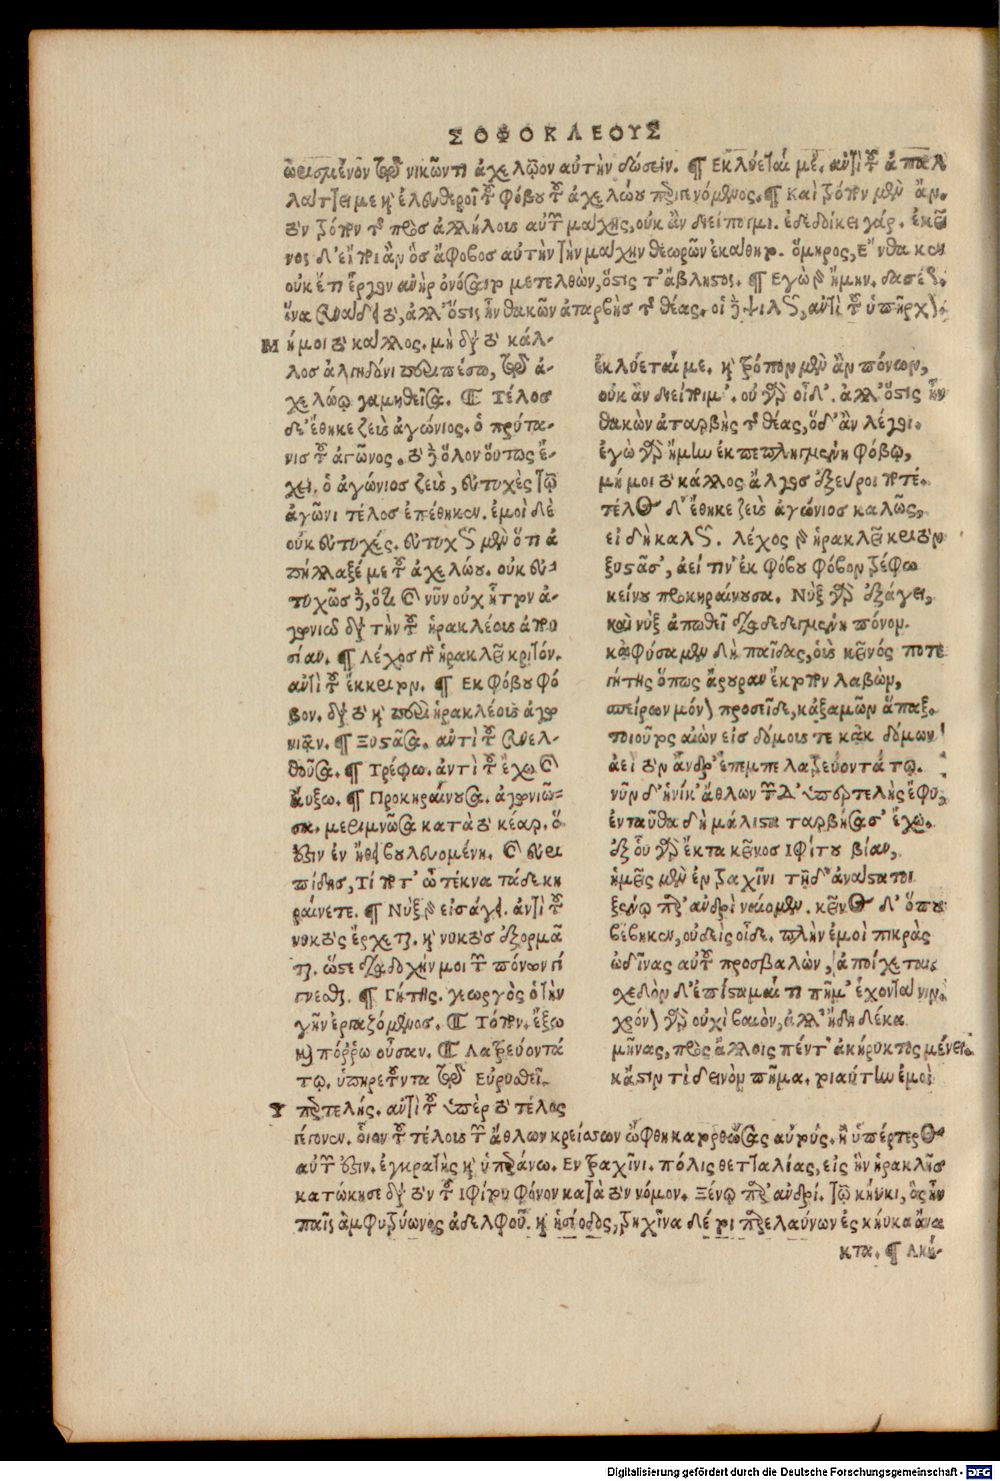 ΣΟΦΟΚΛΕΟΥΣ
ὡρισμένον τῷ νικῶντι ἀχελῷον αὐτὴν δώσειν. ¶ Ἐκλύεταί με. ἀντὶ τοῦ ἀπαλ
λάττει με καὶ ἐλευθεροῖ τοῦ φόβου τοῦ ἀχελώου παραγενόμενος. ¶ Καὶ τρόπον μὲν ἂν.
τὸν τρόπον τῆς πρὸς ἀλλήλους αὐτῶν μάχης, οὐκ ἂν διείποιμι. ἐδεδοίκει γάρ. ἐκεῖ
νος δ' εἴποι ἂν ὃς ἄφοβος αὐτὴν τὴν μάχην θεωρῶν ἐκάθητο. ὅμηρος, Ἔνθα κεν
οὐκέτι ἔργον ἀνὴρ ὀνόσαιτο μετελθὼν, ὅστις τ' ἄβλητος. ¶ Ἐγὼ γὰρ ἥμην. δασέως.
ἵνα συνάδῃ τὸ, ἀλλ' ὅστις ἦν θακῶν ἀταρβὴς τῆς θέας. οἱ δὲ ψιλῶς, ἀντὶ τοῦ ὑπῆρχον.
Μ ή μοι τὸ κάλλος. μὴ διὰ τὸ κάλ-
λος ἀλγηδόνι περιπέσω, τῷ ἀ-
χελώῳ γαμηθεῖσα. ¶ Τέλος
δ' ἔθηκε ζεὺς ἀγώνιος. ὁ πρύτα-
νις τοῦ ἀγῶνος. τὸ δὲ ὅλον οὕτως ἔ-
χει. ὁ ἀγώνιος ζεὺς, εὐτυχὲς τῷ
ἀγῶνι τέλος ἐπέθηκεν. ἐμοὶ δὲ
οὐκ εὐτυχές. εὐτυχῶς μὲν ὅτι ἀ
πήλλαξέ με τοῦ ἀχελώου. οὐκ εὐ-
τυχῶς δὲ, ὅτι καὶ νῦν οὐχ ἧττον ἀ-
γωνιῶ διὰ τὴν τοῦ ἡρακλέους ἀπου
σίαν. ¶ Λέχος γὰρ ἡρακλεῖ κριτόν.
ἀντὶ τοῦ ἔκκριτον. ¶ Ἐκ φόβου φό
βον. διὰ τὸ καὶ περὶ ἡρακλέους ἀγω
νιᾶν. ¶ Ξυστᾶσα. ἀντὶ τοῦ συνελ-
θοῦσα. ¶ Τρέφω. ἀντὶ τοῦ ἔχω καὶ
αὔξω. ¶ Προκηραίνουσα. ἀγωνιῶ-
σα. μεριμνῶσα κατὰ τὸ κέαρ. ὅ
ἐστιν ἐν ἤθει βουλευομένη. καὶ εὐρι
πίδης, Τί ποτ' ὦ τέκνα τάδε κη
ραίνετε. ¶ Νὺξ γὰρ εἰσάγει. ἀντὶ τοῦ
νυκτὸς ἔρχεται. καὶ νυκτὸς ἐξορμᾶ
ται. ὥστε διαδοχήν μοι τῶν πόνων γί
γνεσθαι. ¶ Γῄτης. γεωργὸς ὁ τὴν
γῆν ἐργαζόμενος. ¶ Τόπον. ἔξω
καὶ πόρρω οὖσαν. ¶ Λατρεύοντά
τῳ. ὑπηρετοῦντα τῷ Εὐρυσθεῖ.
Υ περτελής. ἀντὶ τοῦ ὑπὲρ τὸ τέλος
ἐκλύεταί με. καὶ τρόπον μὲν ἂν πόνων,
οὐκ ἂν διείποιμ'. οὐ γὰρ οἶδ'. ἀλλ' ὅστις ἦν
θακῶν ἀταρβὴς τῆς θέας, ὅδ' ἂν λέγοι.
ἐγὼ γὰρ ἥμην ἐκπεπληγμένη φόβῳ,
μή μοι τὸ κάλλος ἄλγος ἐξεύροι ποτέ.
τέλος δ' ἔθηκε ζεὺς ἀγώνιος καλῶς,
εἰ δὴ καλῶς. λέχος γὰρ ἡρακλεῖ κριτὸν
ξυστᾶσ', ἀεί τιν' ἐκ φόβου φόβον τρέφω
κείνου προκηραίνουσα. Νὺξ γὰρ εἰσάγει,
καὶ νὺξ ἀπωθεῖ διαδεδεγμένη πόνον.
κἀφύσαμεν δὴ παῖδας, οὓς κεῖνός ποτε
γῄτης ὅπως ἄρουραν ἔκτοπον λαβὼν,
σπείρων μόνον προσεῖδε, κἀξαμῶν ἅπαξ.
τοιοῦτος αἰὼν εἰς δόμους τε κἀκ δόμων
ἀεὶ τὸν ἄνδρ' ἔπεμπε λατρεύοντά τῳ.
νῦν δ' ἡνίκ' ἄθλων τῶνδ' ὑπερτελὴς ἔφυ,
ἐνταῦθα δὴ μάλιστα ταρβήσασ' ἔχω.
ἐξ οὗ γὰρ ἔκτα κεῖνος ἰφίτου βίαν,
ἡμεῖς μὲν ἐν τραχῖνι τῇδ' ἀνάστατοι
ξένῳ παρ' ἀνδρὶ ναίομεν. κεῖνος δ' ὅπου
βέβηκεν, οὐδεὶς οἶδε. πλὴν ἐμοὶ πικρὰς
ὠδῖνας αὐτοῦ προσβαλὼν, ἀποίχεται.
σχεδὸν δ' ἐπίσταμαί τι πῆμ' ἔχοντά νιν.
χρόνον γὰρ οὐχὶ βαιὸν, ἀλλ' ἤδη δέκα
μῆνας, πρὸς ἄλλοις πέντ' ἀκήρυκτος μένει.
κἄστιν τὶ δεινὸν πῆμα. τοιαύτην ἐμοὶ
γέγονεν. οἷον τοῦ τέλους τῶν ἄθλων κρείσσων ὤφθη κατορθώσας αὐτούς. ἢ ὑπέρτερος
αὐτῶν ἐστιν. ἐγκρατὴς καὶ ὑπεράνω. Ἐν τραχῖνι. πόλις θετταλίας, εἰς ἣν ἡρακλῆς
κατώκησε διὰ τὸν τοῦ ἰφίτου φόνον κατὰ τὸν νόμον. Ξένῳ παρ' ἀνδρί. τῷ κήυκι, ὃς ἦν
παῖς ἀμφιτρύωνος ἀδελφοῦ. καὶ ἡσίοδος, τρηχῖνα δέ τοι παρελαύνων ἐς κήυκα ἄνα
κτα. ¶ Ἀκή-
Digitalisierung gefördert durch die Deutsche Forschungsgemeinschaft - DFG